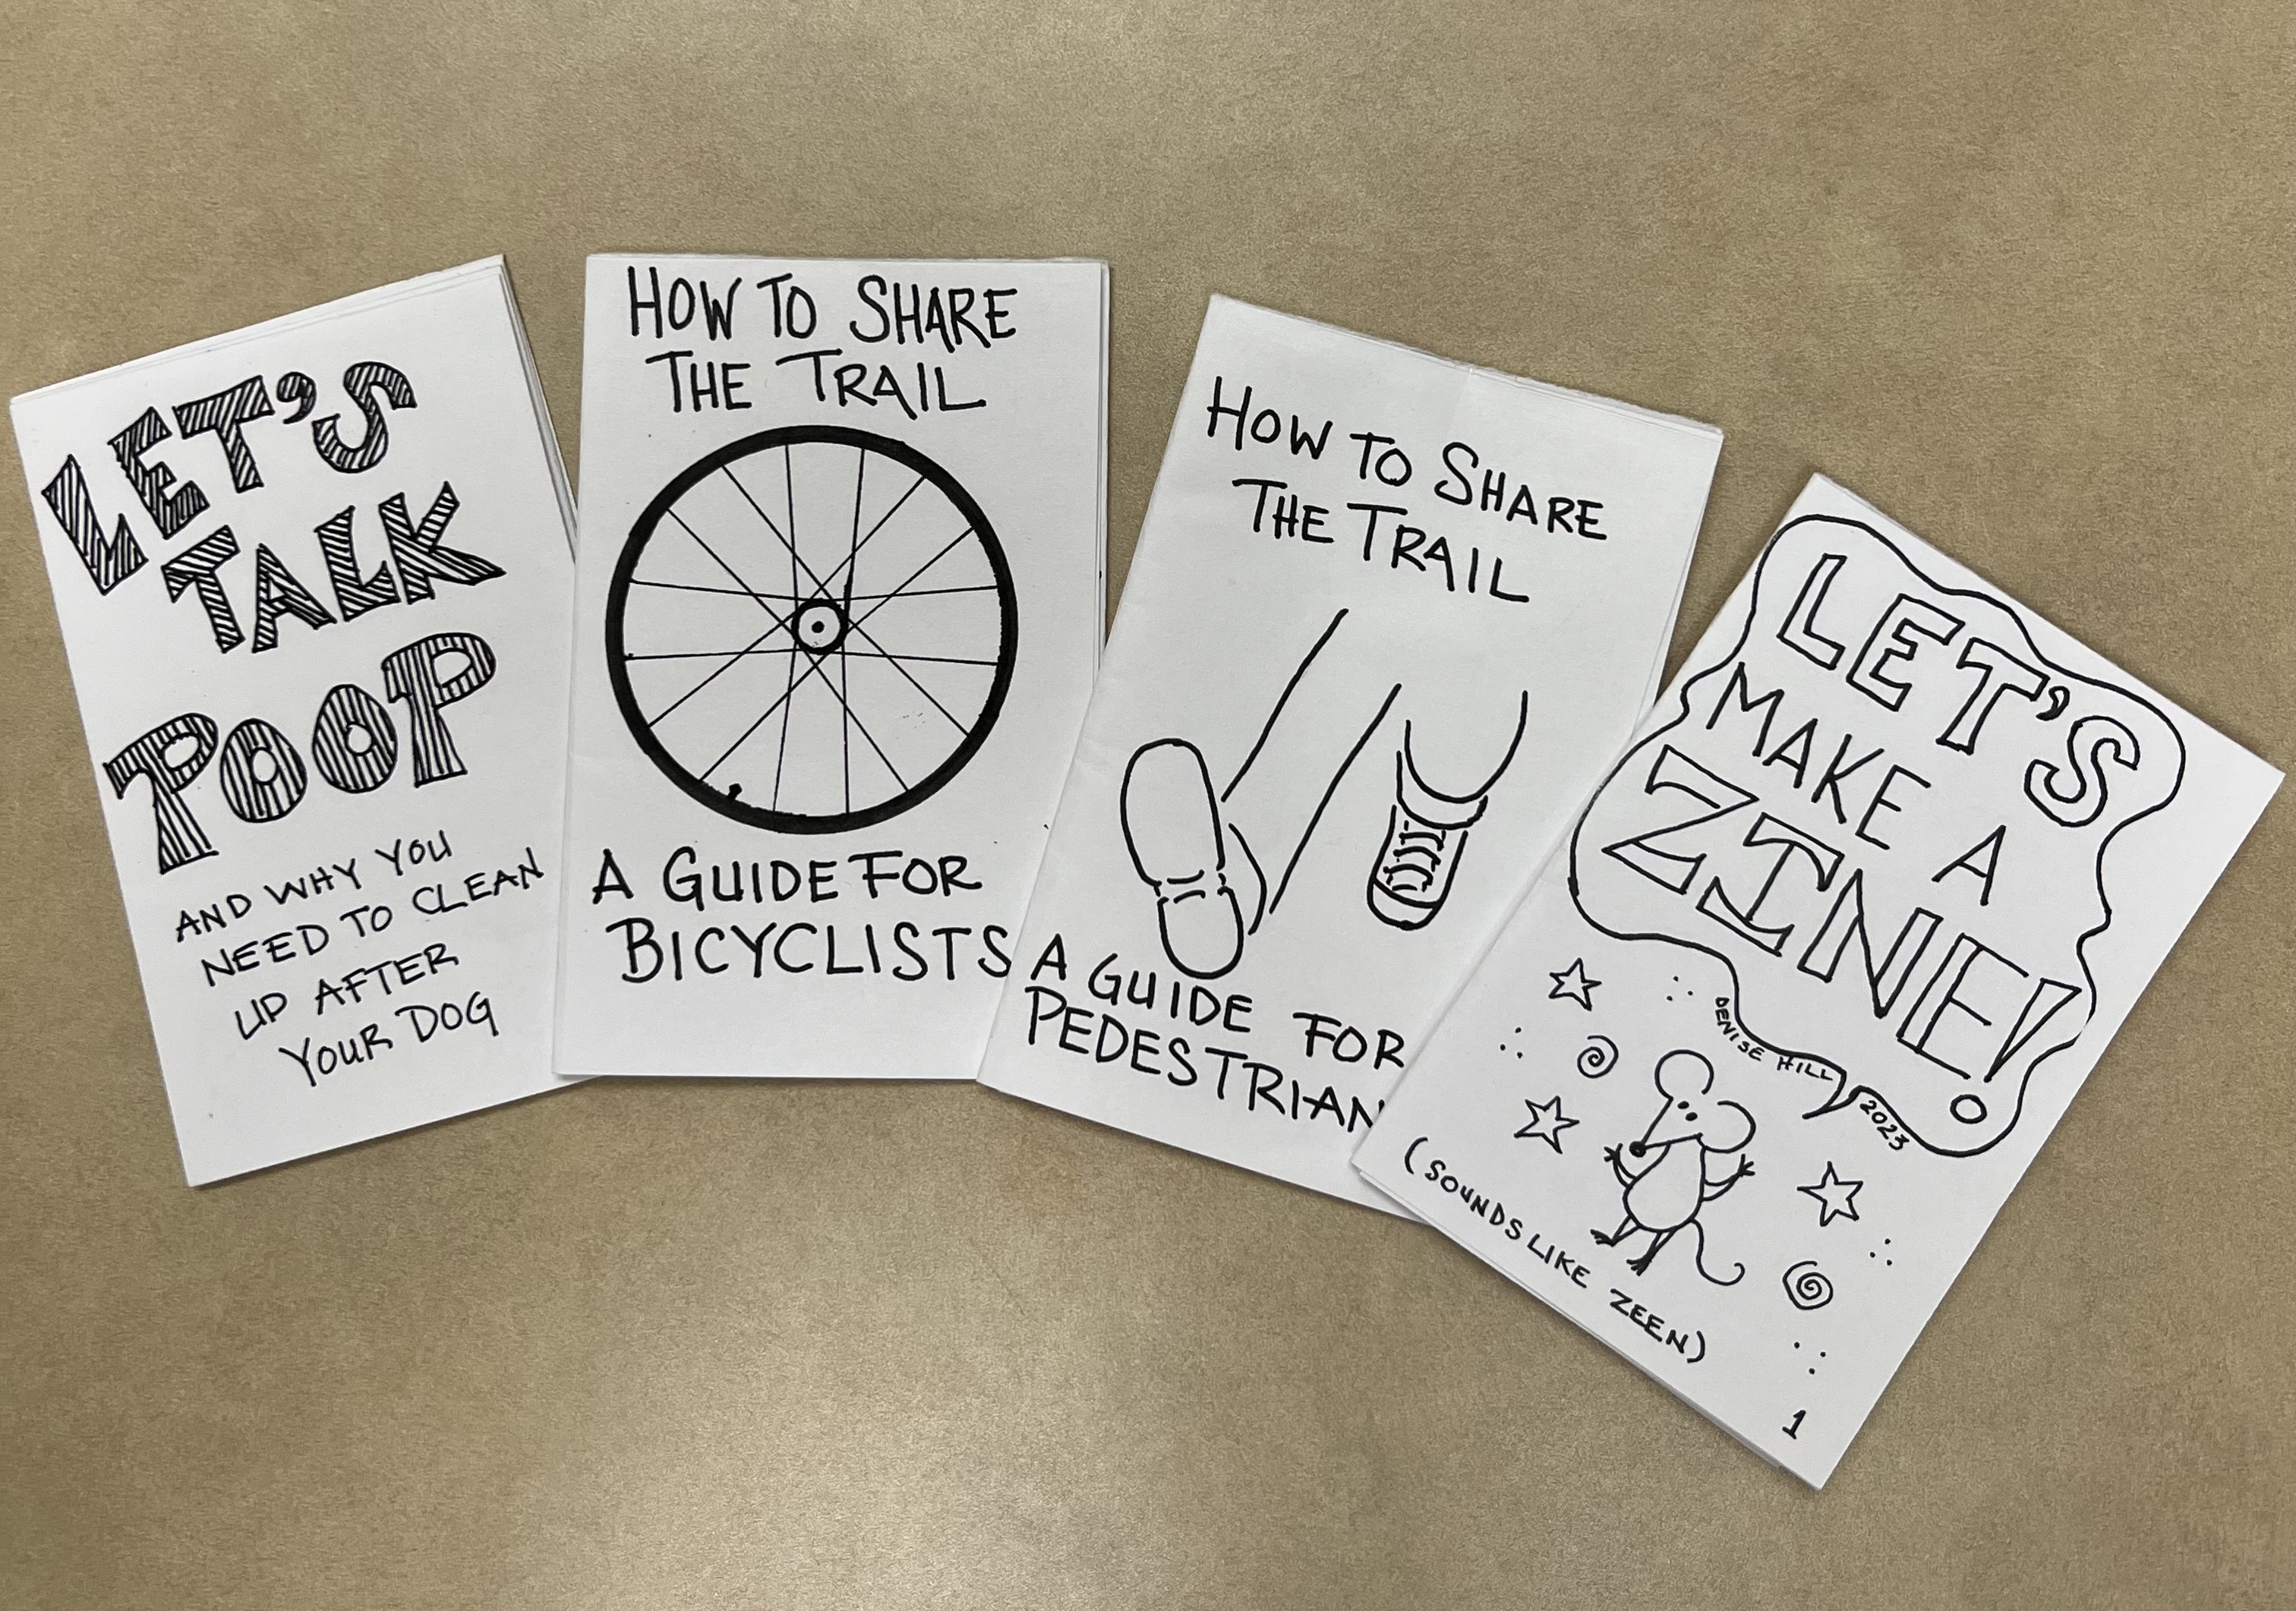 LET'S
TALK
POOP
AND WHY YOU
NEED TO CLEAN
UP AFTER
YOUR DOG
HOW TO SHARE
THE TRAIL
A GUIDE FOR
BICYCLISTS
HOW TO SHARE
THE TRAIL
A GUIDE FOR
PEDESTRIAN
LET'S
MAKE A
ZINE!
DENISE HILL
2023
(SOUNDS LIKE ZEEN)
1